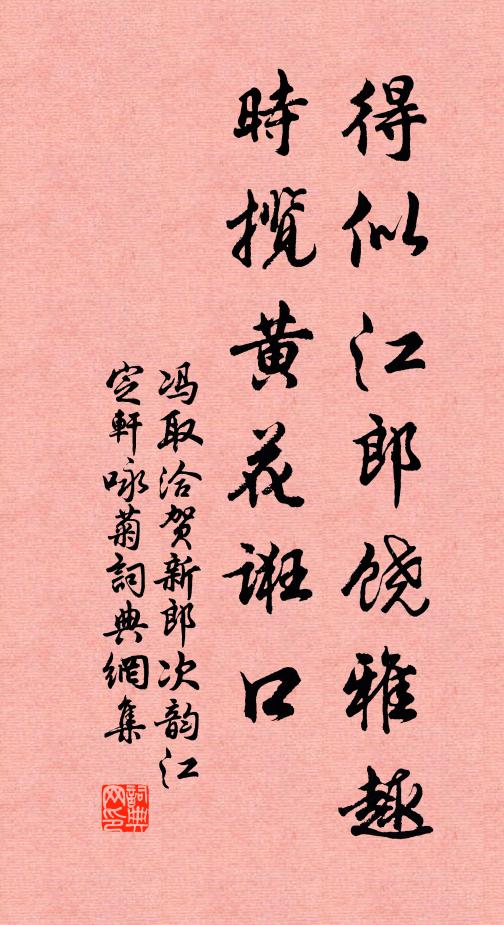 得似江郎饶雅趣
時揽黄花诳口
冯取洽贺新郎次韵江
定軒咏菊詞典網集
詞典
网印